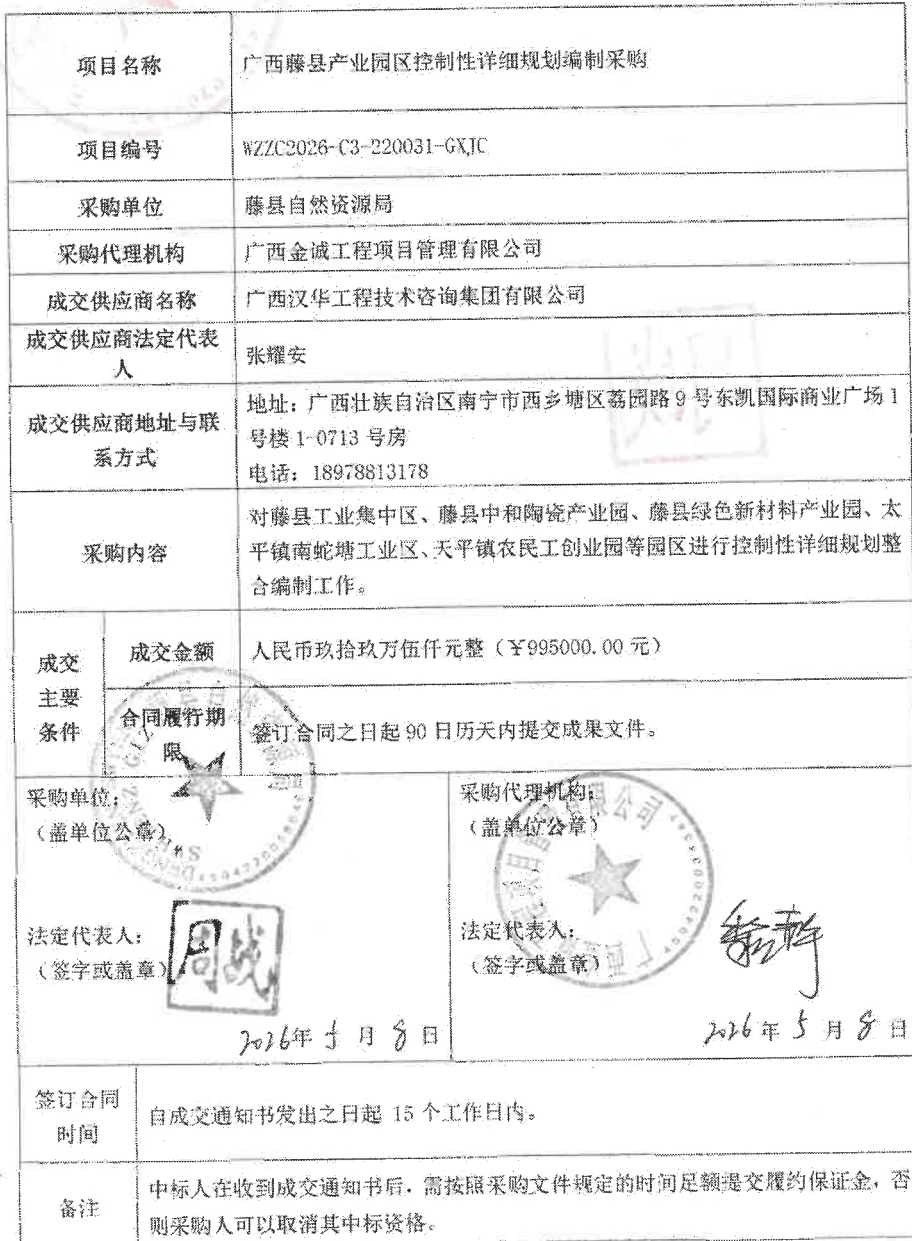 项目名称
广西藤县产业园区控制性详细规划编制采购
项目编号
WZZC2026-C3-220031-GXJC
采购单位
藤县自然资源局
采购代理机构
广西金诚工程项目管理有限公司
成交供应商名称
广西汉华工程技术咨询集团有限公司
成交供应商法定代表
人
张耀安
成交供应商地址与联
系方式
地址：广西壮族自治区南宁市西乡塘区荔园路 9 号东凯国际商业广场 1
号楼 1-0713 号房
电话：18978813178
采购内容
对藤县工业集中区、藤县中和陶瓷产业园、藤县绿色新材料产业园、太
平镇南蛇塘工业区、天平镇农民工创业园等园区进行控制性详细规划整
合编制工作。
成交
主要
条件
成交金额
人民币玖拾玖万伍仟元整（￥995000.00 元）
合同履行期
限
签订合同之日起 90 日历天内提交成果文件。
采购单位：
（盖单位公章）
法定代表人：
（签字或盖章）
2026年 5 月 8 日
采购代理机构：
（盖单位公章）
法定代表人：
（签字或盖章）
2026 年 5 月 8 日
签订合同
时间
自成交通知书发出之日起 15 个工作日内。
备注
中标人在收到成交通知书后，需按照采购文件规定的时间足额提交履约保证金，否
则采购人可以取消其中标资格。